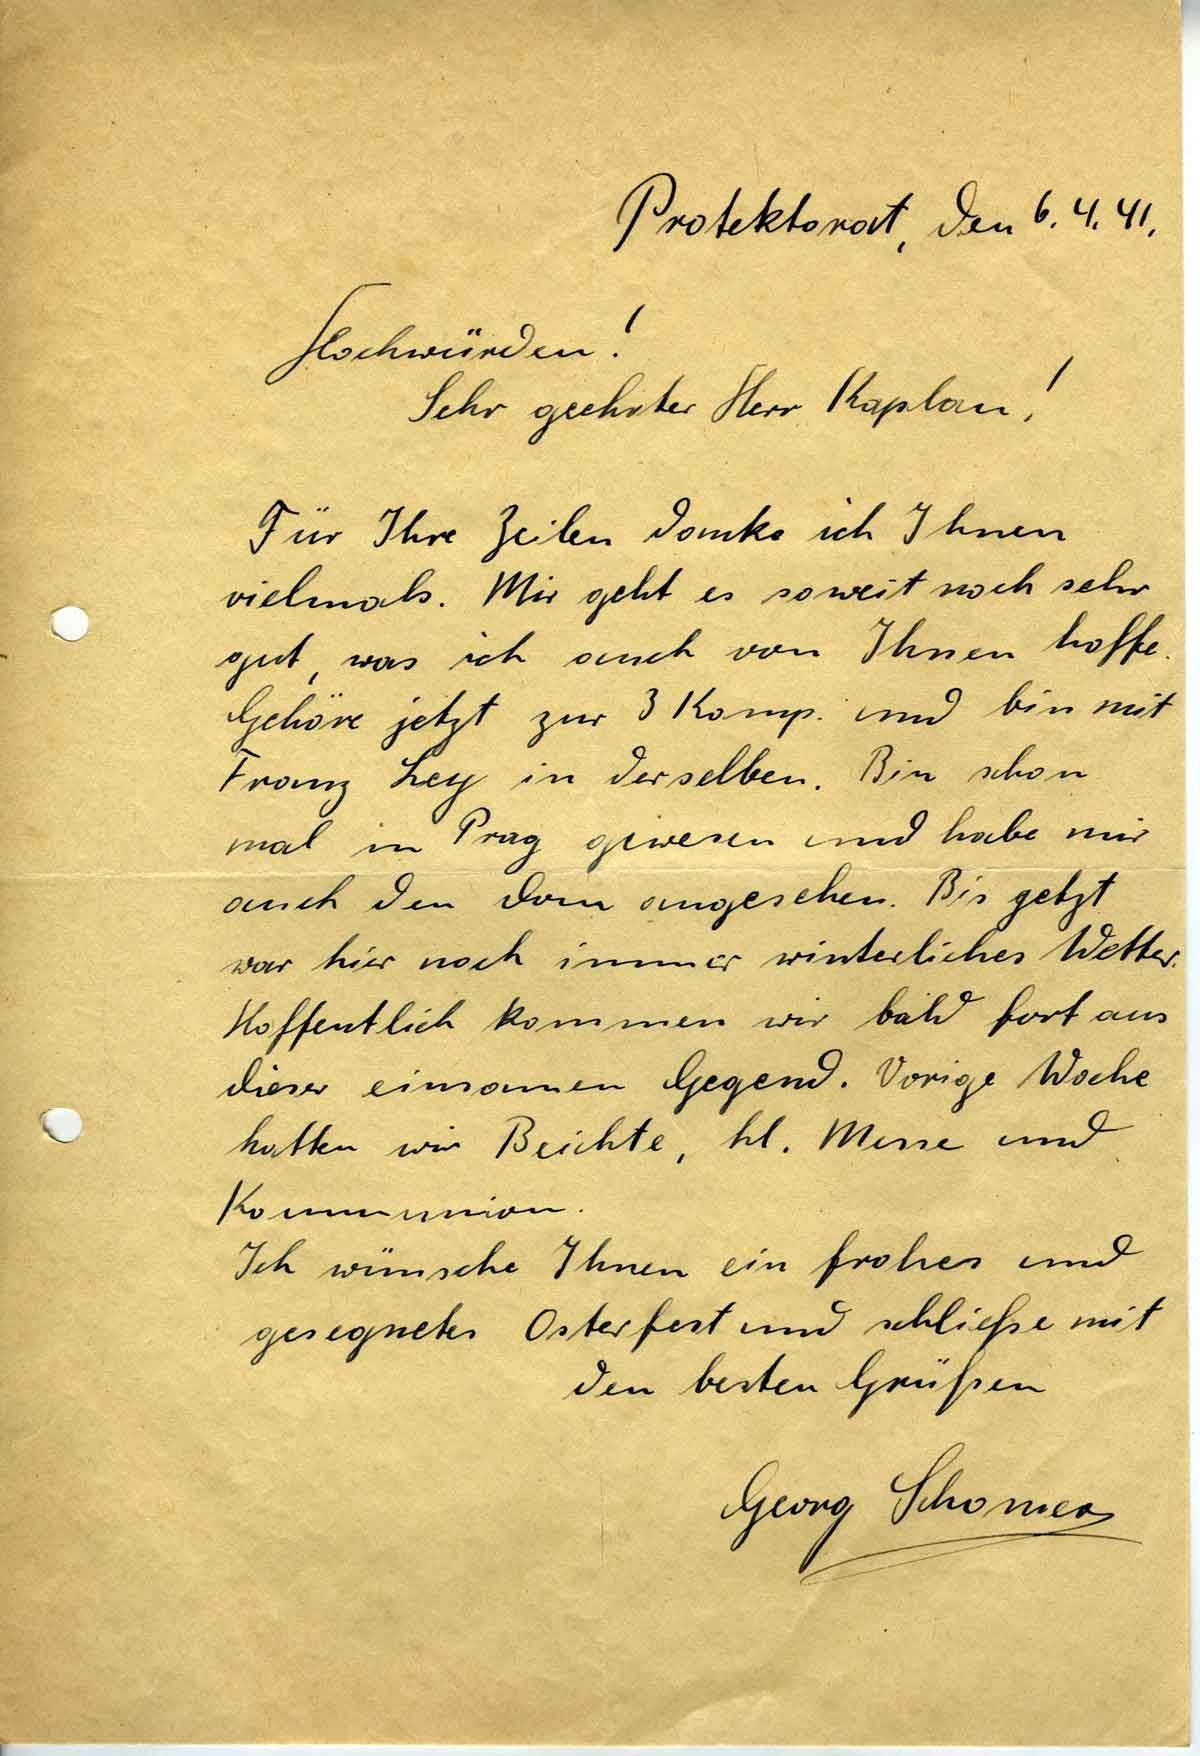 Protektorat, den 6.4.41.
Hochwürden!
Sehr geehrter Herr Kaplan!
Für Ihre Zeilen danke ich Ihnen
vielmals. Mir geht es soweit noch sehr
gut, was ich auch von Ihnen hoffe.
Gehöre jetzt zur 3 Komp. und bin mit
Franz Ley in derselben. Bin schon
mal in Prag gewesen und habe mir
auch den Dom angesehen. Bis getzt
war hier noch immer winterliches Wetter.
Hoffentlich kommen wir bald fort aus
dieser einsamen Gegend. Vorige Woche
hatten wir Beichte, hl. Messe und
Kommunion.
Ich wünsche Ihnen ein frohes und
gesegnetes Osterfest und schließe mit
den besten Grüßen
Georg Schomer